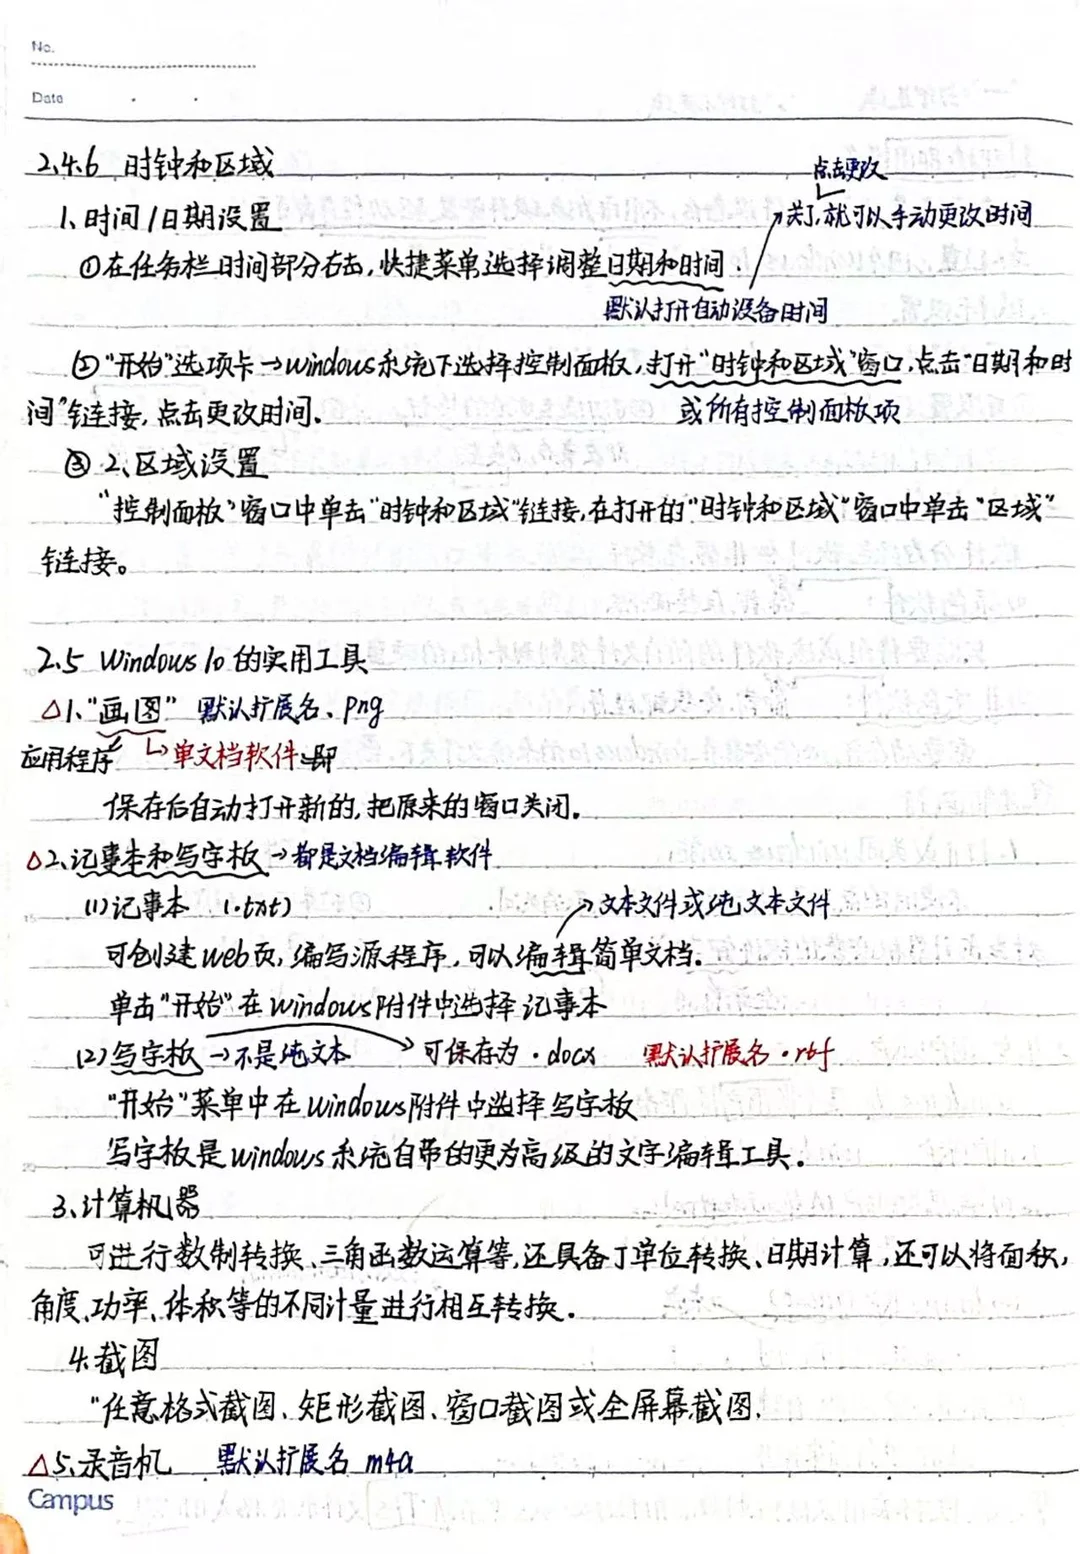 No.
Date
2.4.6 时钟和区域
点击更改
1、时间/日期设置
关了,就可以手动更改时间
①在任务栏时间部分右击,快捷菜单选择调整日期和时间.
默认打开自动设备时间
②"开始"选项卡→windows系统下选择控制面板,打开"时钟和区域"窗口,点击"日期和时
间"链接,点击更改时间.
或所有控制面板项
③ 2、区域设置
"控制面板"窗口中单击"时钟和区域"链接,在打开的"时钟和区域"窗口中单击"区域"
链接。
2.5 Windows 10的实用工具
△1."画图" 默认扩展名、png
应用程序 ↳单文档软件 即
保存后自动打开新的,把原来的窗口关闭.
△2、记事本和写字板→都是文档编辑软件
(1)记事本 (.txt) 文本文件或纯文本文件
可创建web页,编写源程序,可以编辑简单文档.
单击"开始".在windows附件中选择记事本
(2)写字板→不是纯文本 可保存为.docx 默认扩展名.rtf
"开始"菜单中在windows附件中选择写字板
写字板是windows系统自带的更为高级的文字编辑工具.
3、计算机器
可进行数制转换、三角函数运算等,还具备了单位转换、日期计算,还可以将面积,
角度、功率、体积等的不同计量进行相互转换.
4.截图
"任意格式截图、矩形截图、窗口截图或全屏幕截图.
△5、录音机 默认扩展名 m4a
Campus